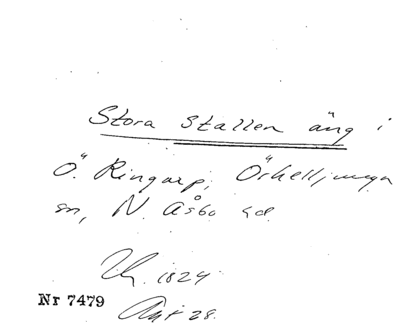 Stora stallen äng i
Ö. Ringarp, Örkelljunga
sn, N. Åsbo hd.
1824
Nr 7479
Akt 28.